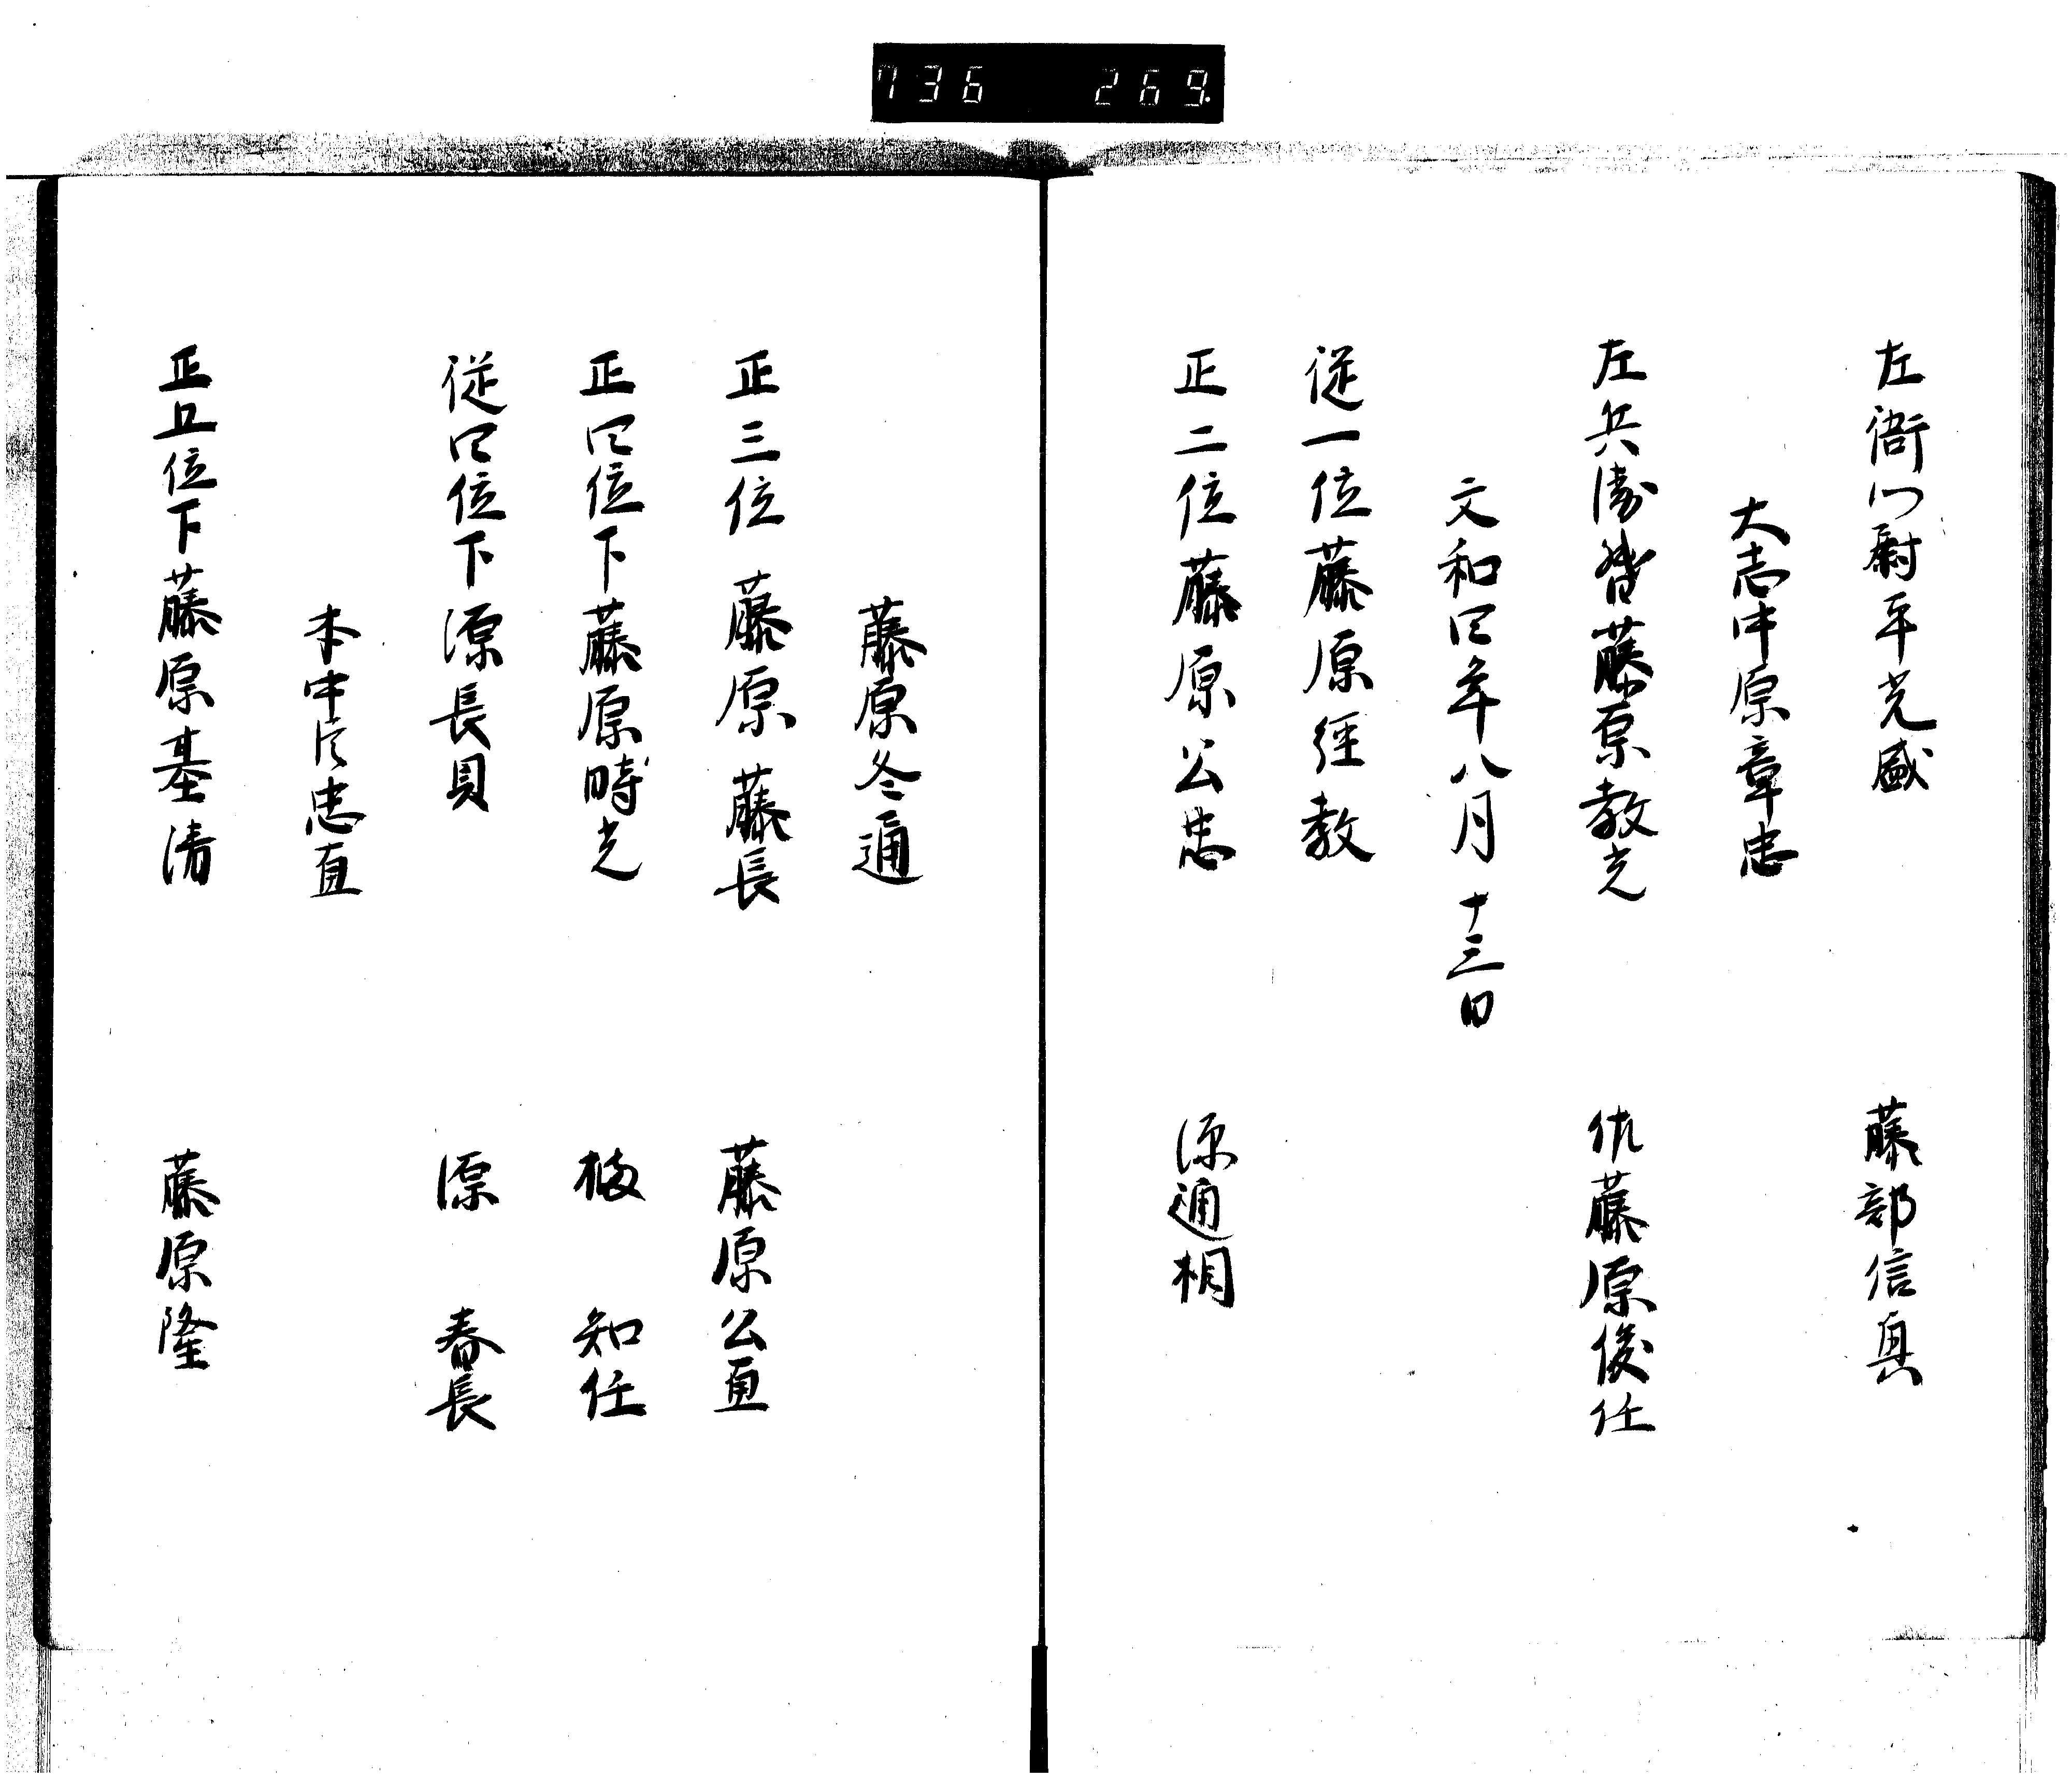 736 269
左衛門尉平光盛　藤部信真
大志中原章忠
左兵衛督藤原教光　佐藤原俊任
文和四年八月十三日
従一位藤原経教
正二位藤原公忠　源通相
藤原冬通
正三位藤原藤長　藤原公直
正四位下藤原時光　知任
従四位下源長具　源春長
中臣忠直
正五位下藤原基清　藤原隆